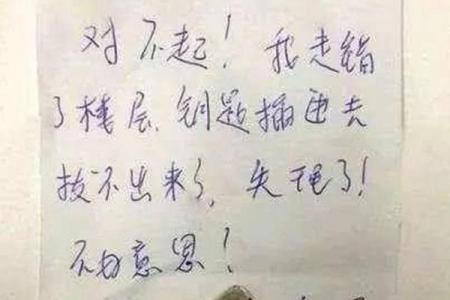 对不起！我走错
了楼层，钥匙插进去
拔不出来了，失理了！
不好意思！